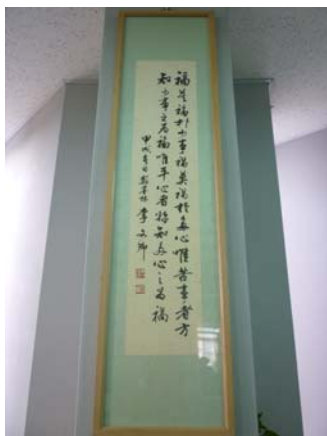 福莫福於少事禍莫禍於多心唯苦事者方
知少事之為福唯平心者始知多心之為禍
甲戌 李文卿